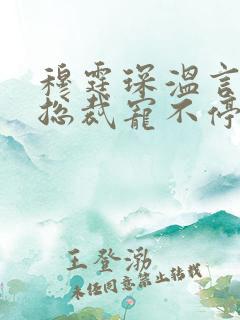 穆霆琛温言
总裁宠不停
王登渤
未经同意禁止转载